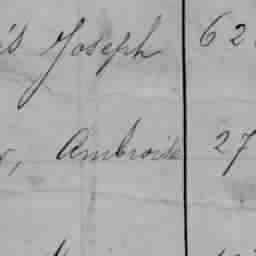 is Joseph 62
r, Ambroise 27